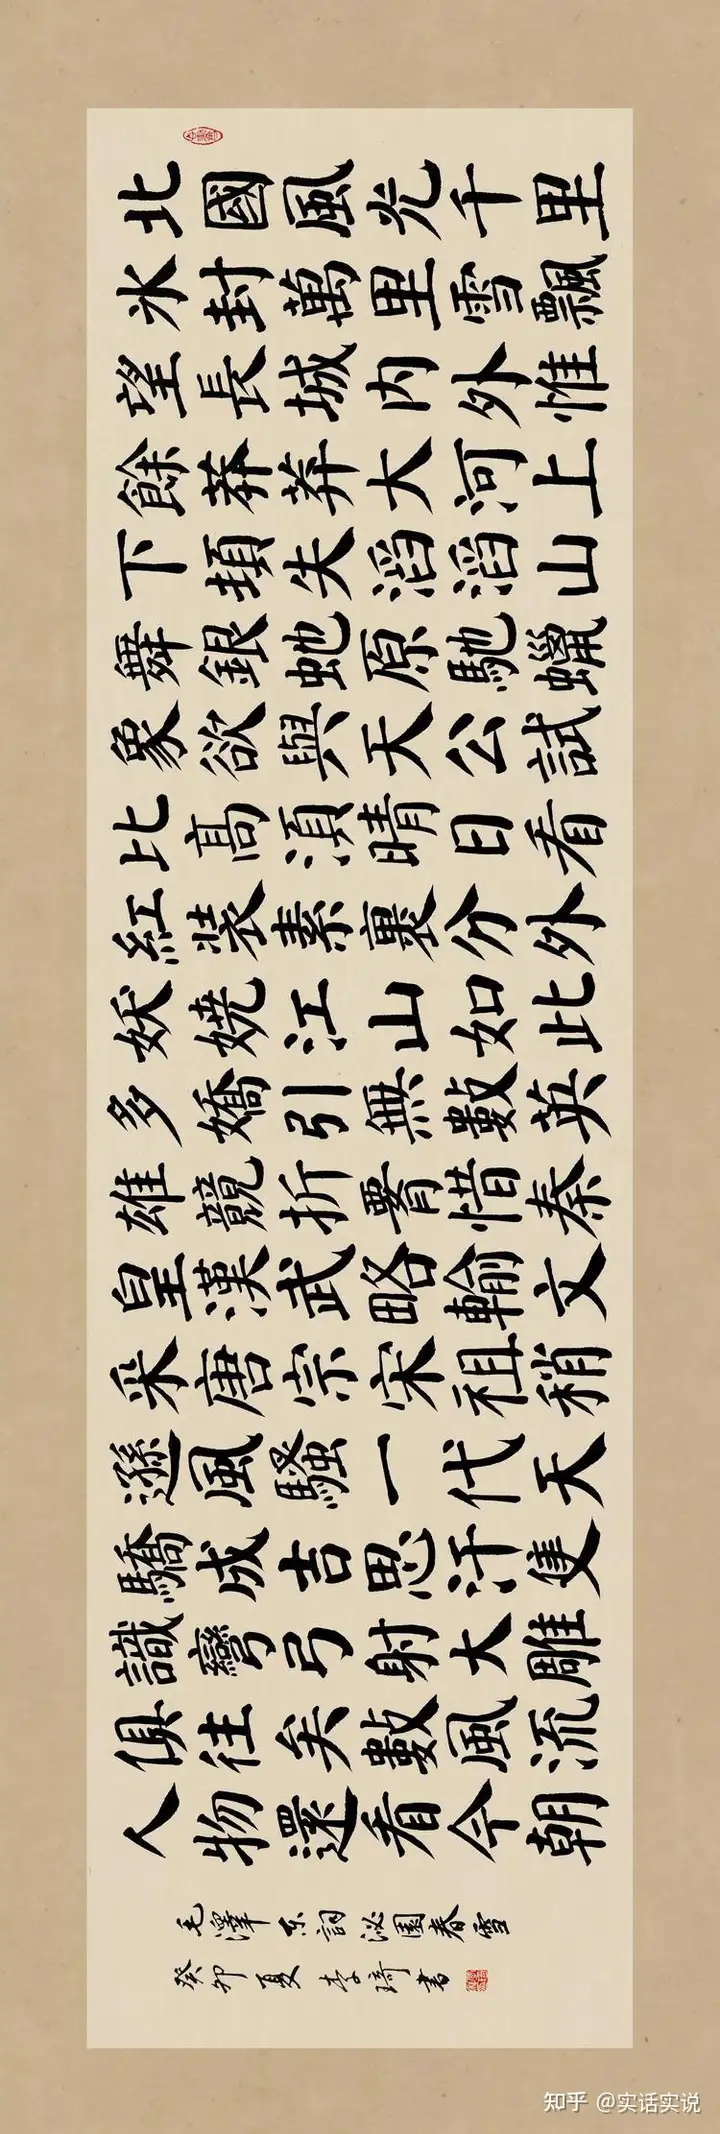 北國風光千里
氷封萬里雪飄
望長城内外惟
餘莽莽大河上
下頓失滔滔山
舞銀虵原馳蠟
象欲與天公試
比高湏晴日看
紅裝素裹分外
妖嬈江山如此
多嬌引無數英
雄競折腰惜秦
皇漢武略輸文
采唐宗宋祖稍
遜風騷一代天
驕成吉思汗隻
識彎弓射大雕
俱往矣數風流
人物還看今朝
毛澤東詞沁園春雪
癸卯夏李琦書
知乎 @实话实说